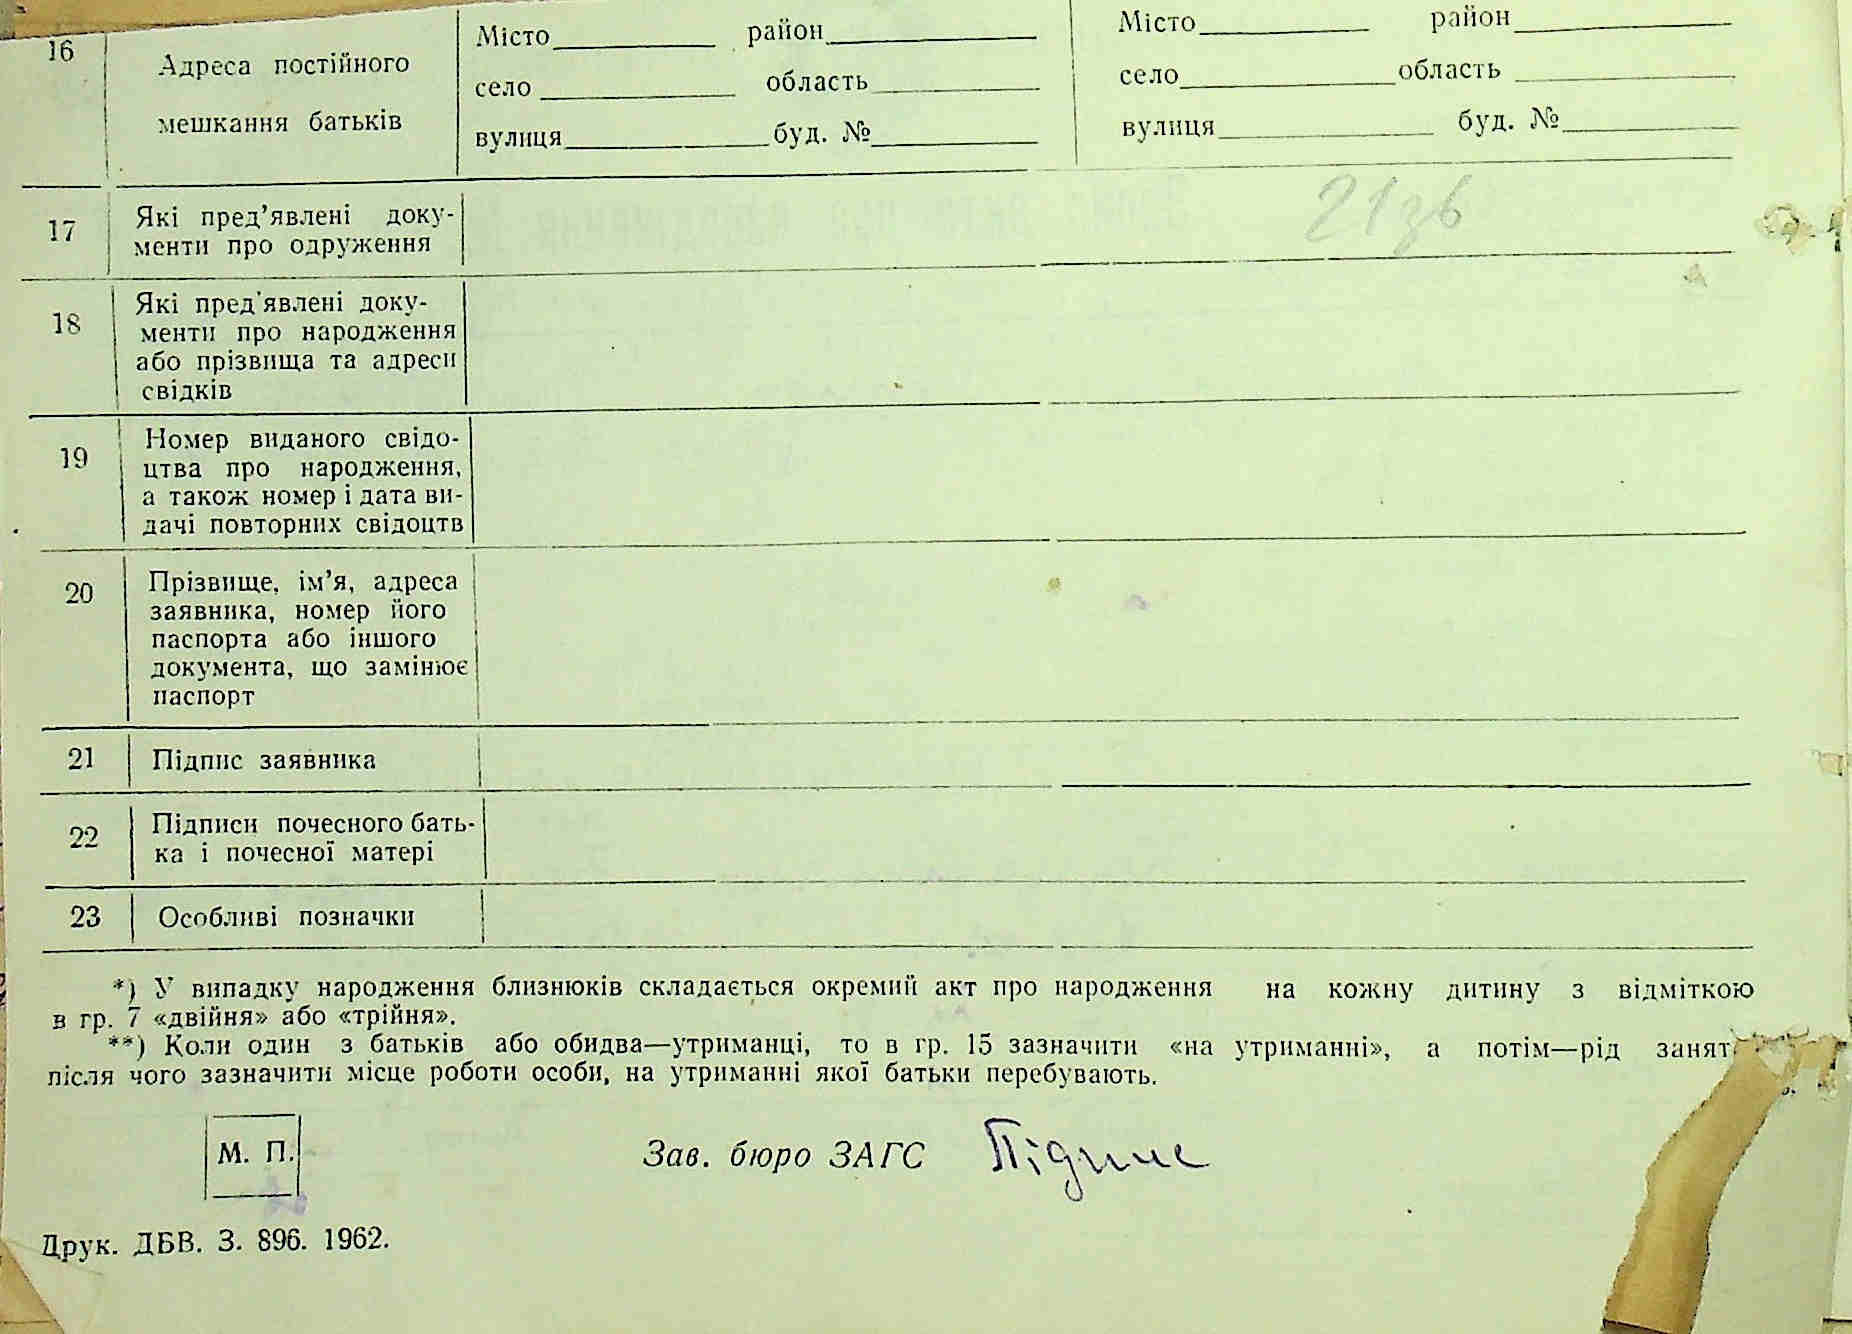 16
Адреса постійного
мешкання батьків
Місто район
село область
вулиця буд. №
Місто район
село область
вулиця буд. №
17
Які пред’явлені доку-
менти про одруження
21зв
18
Які пред’явлені доку-
менти про народження
або прізвища та адреси
свідків
19
Номер виданого свідо-
цтва про народження,
а також номер і дата ви-
дачі повторних свідоцтв
20
Прізвище, ім’я, адреса
заявника, номер його
паспорта або іншого
документа, що замінює
паспорт
21
Підпис заявника
22
Підписи почесного бать-
ка і почесної матері
23
Особливі позначки
*) У випадку народження близнюків складається окремий акт про народження на кожну дитину з відміткою
в гр. 7 «двійня» або «трійня».
**) Коли один з батьків або обидва—утриманці, то в гр. 15 зазначити «на утриманні», а потім—рід занят
після чого зазначити місце роботи особи, на утриманні якої батьки перебувають.
М. П.
Зав. бюро ЗАГС Підпис
Друк. ДБВ. З. 896. 1962.